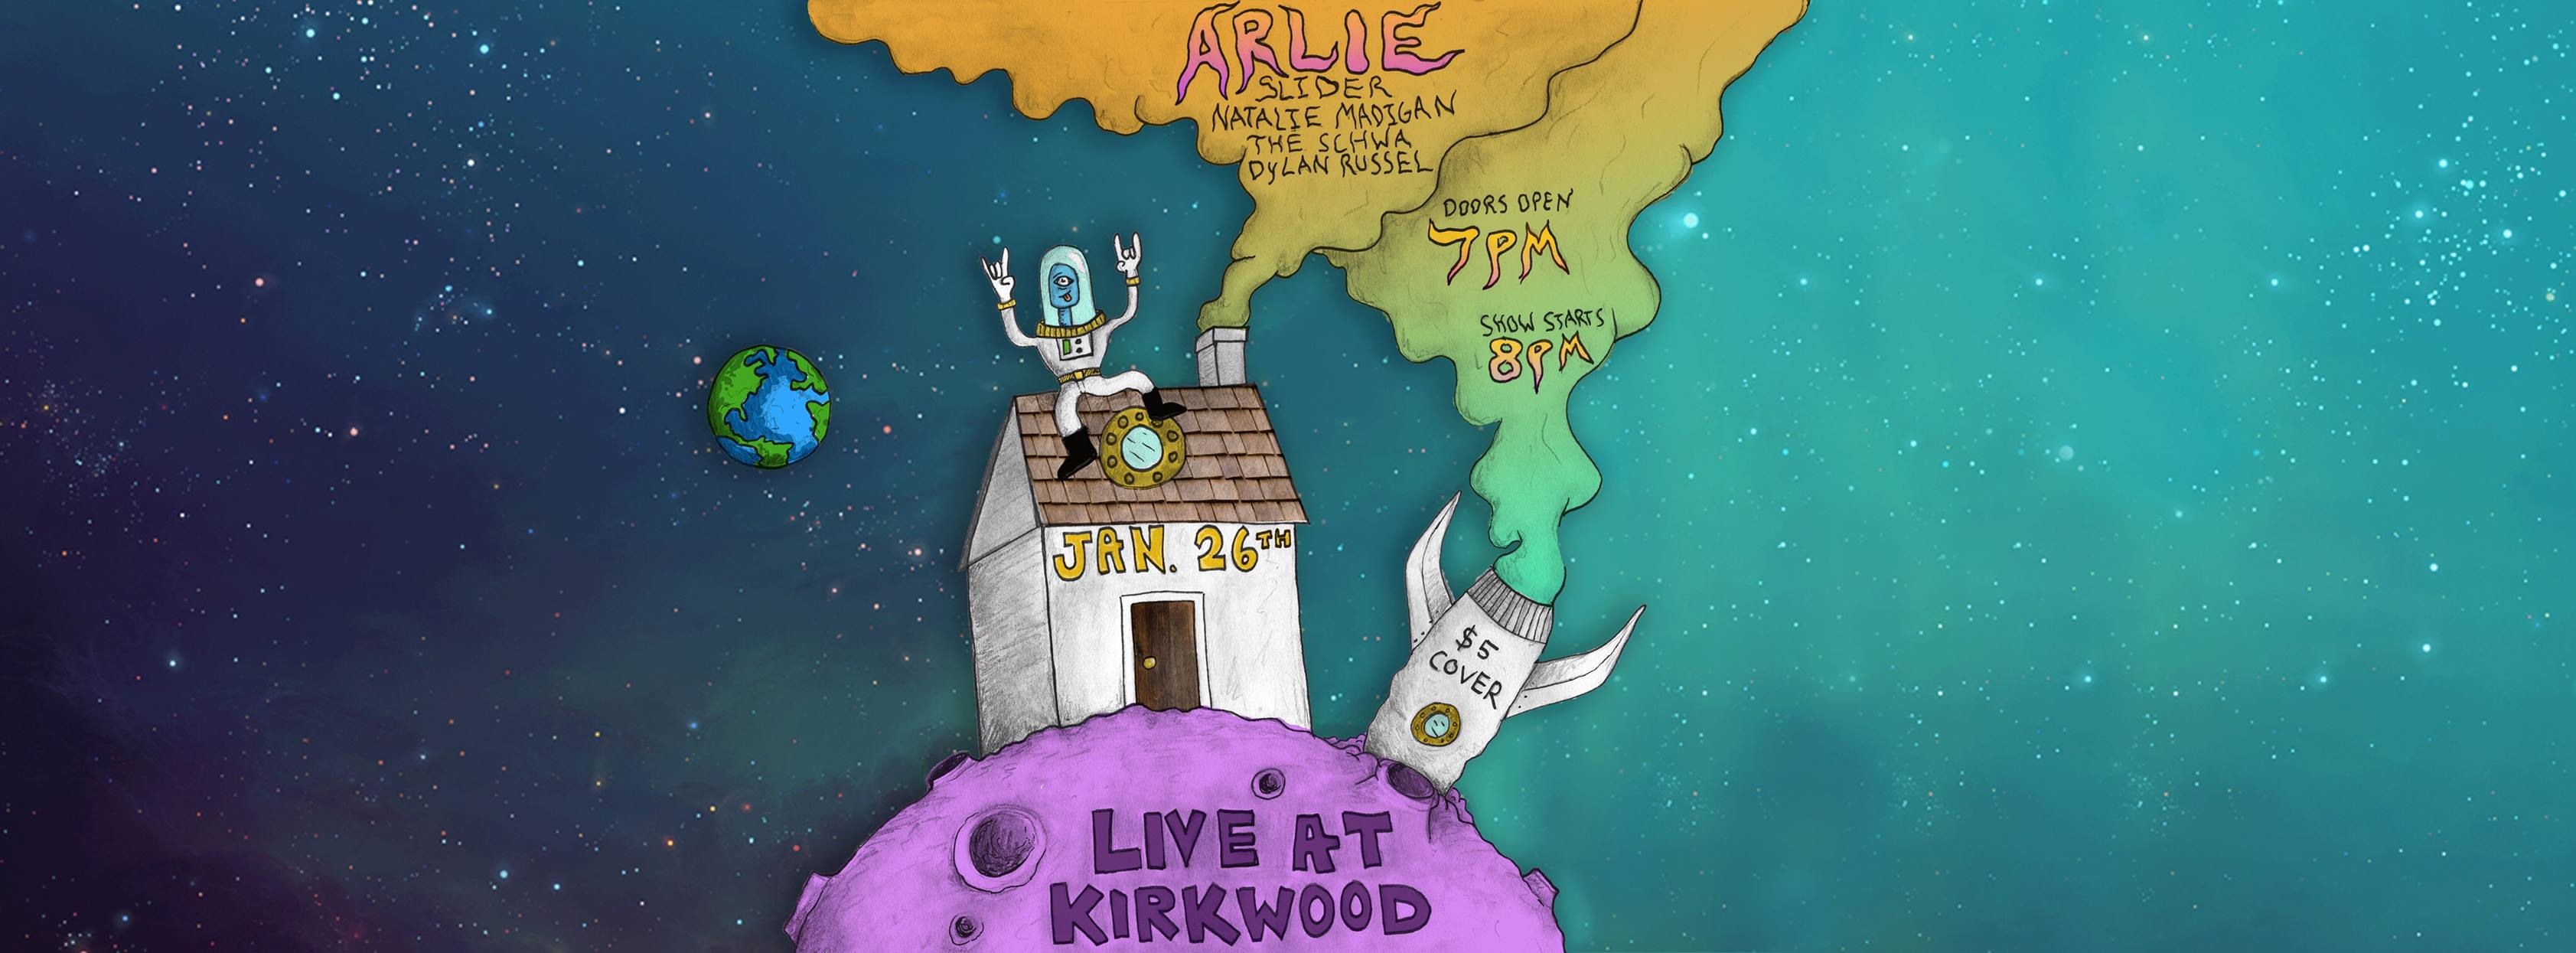 ARLIE
SLIDER
NATALIE MADIGAN
THE SCHWA
DYLAN RUSSEL
DOORS OPEN
7PM
SHOW STARTS
8PM
JAN. 26TH
$5
COVER
LIVE AT
KIRKWOOD